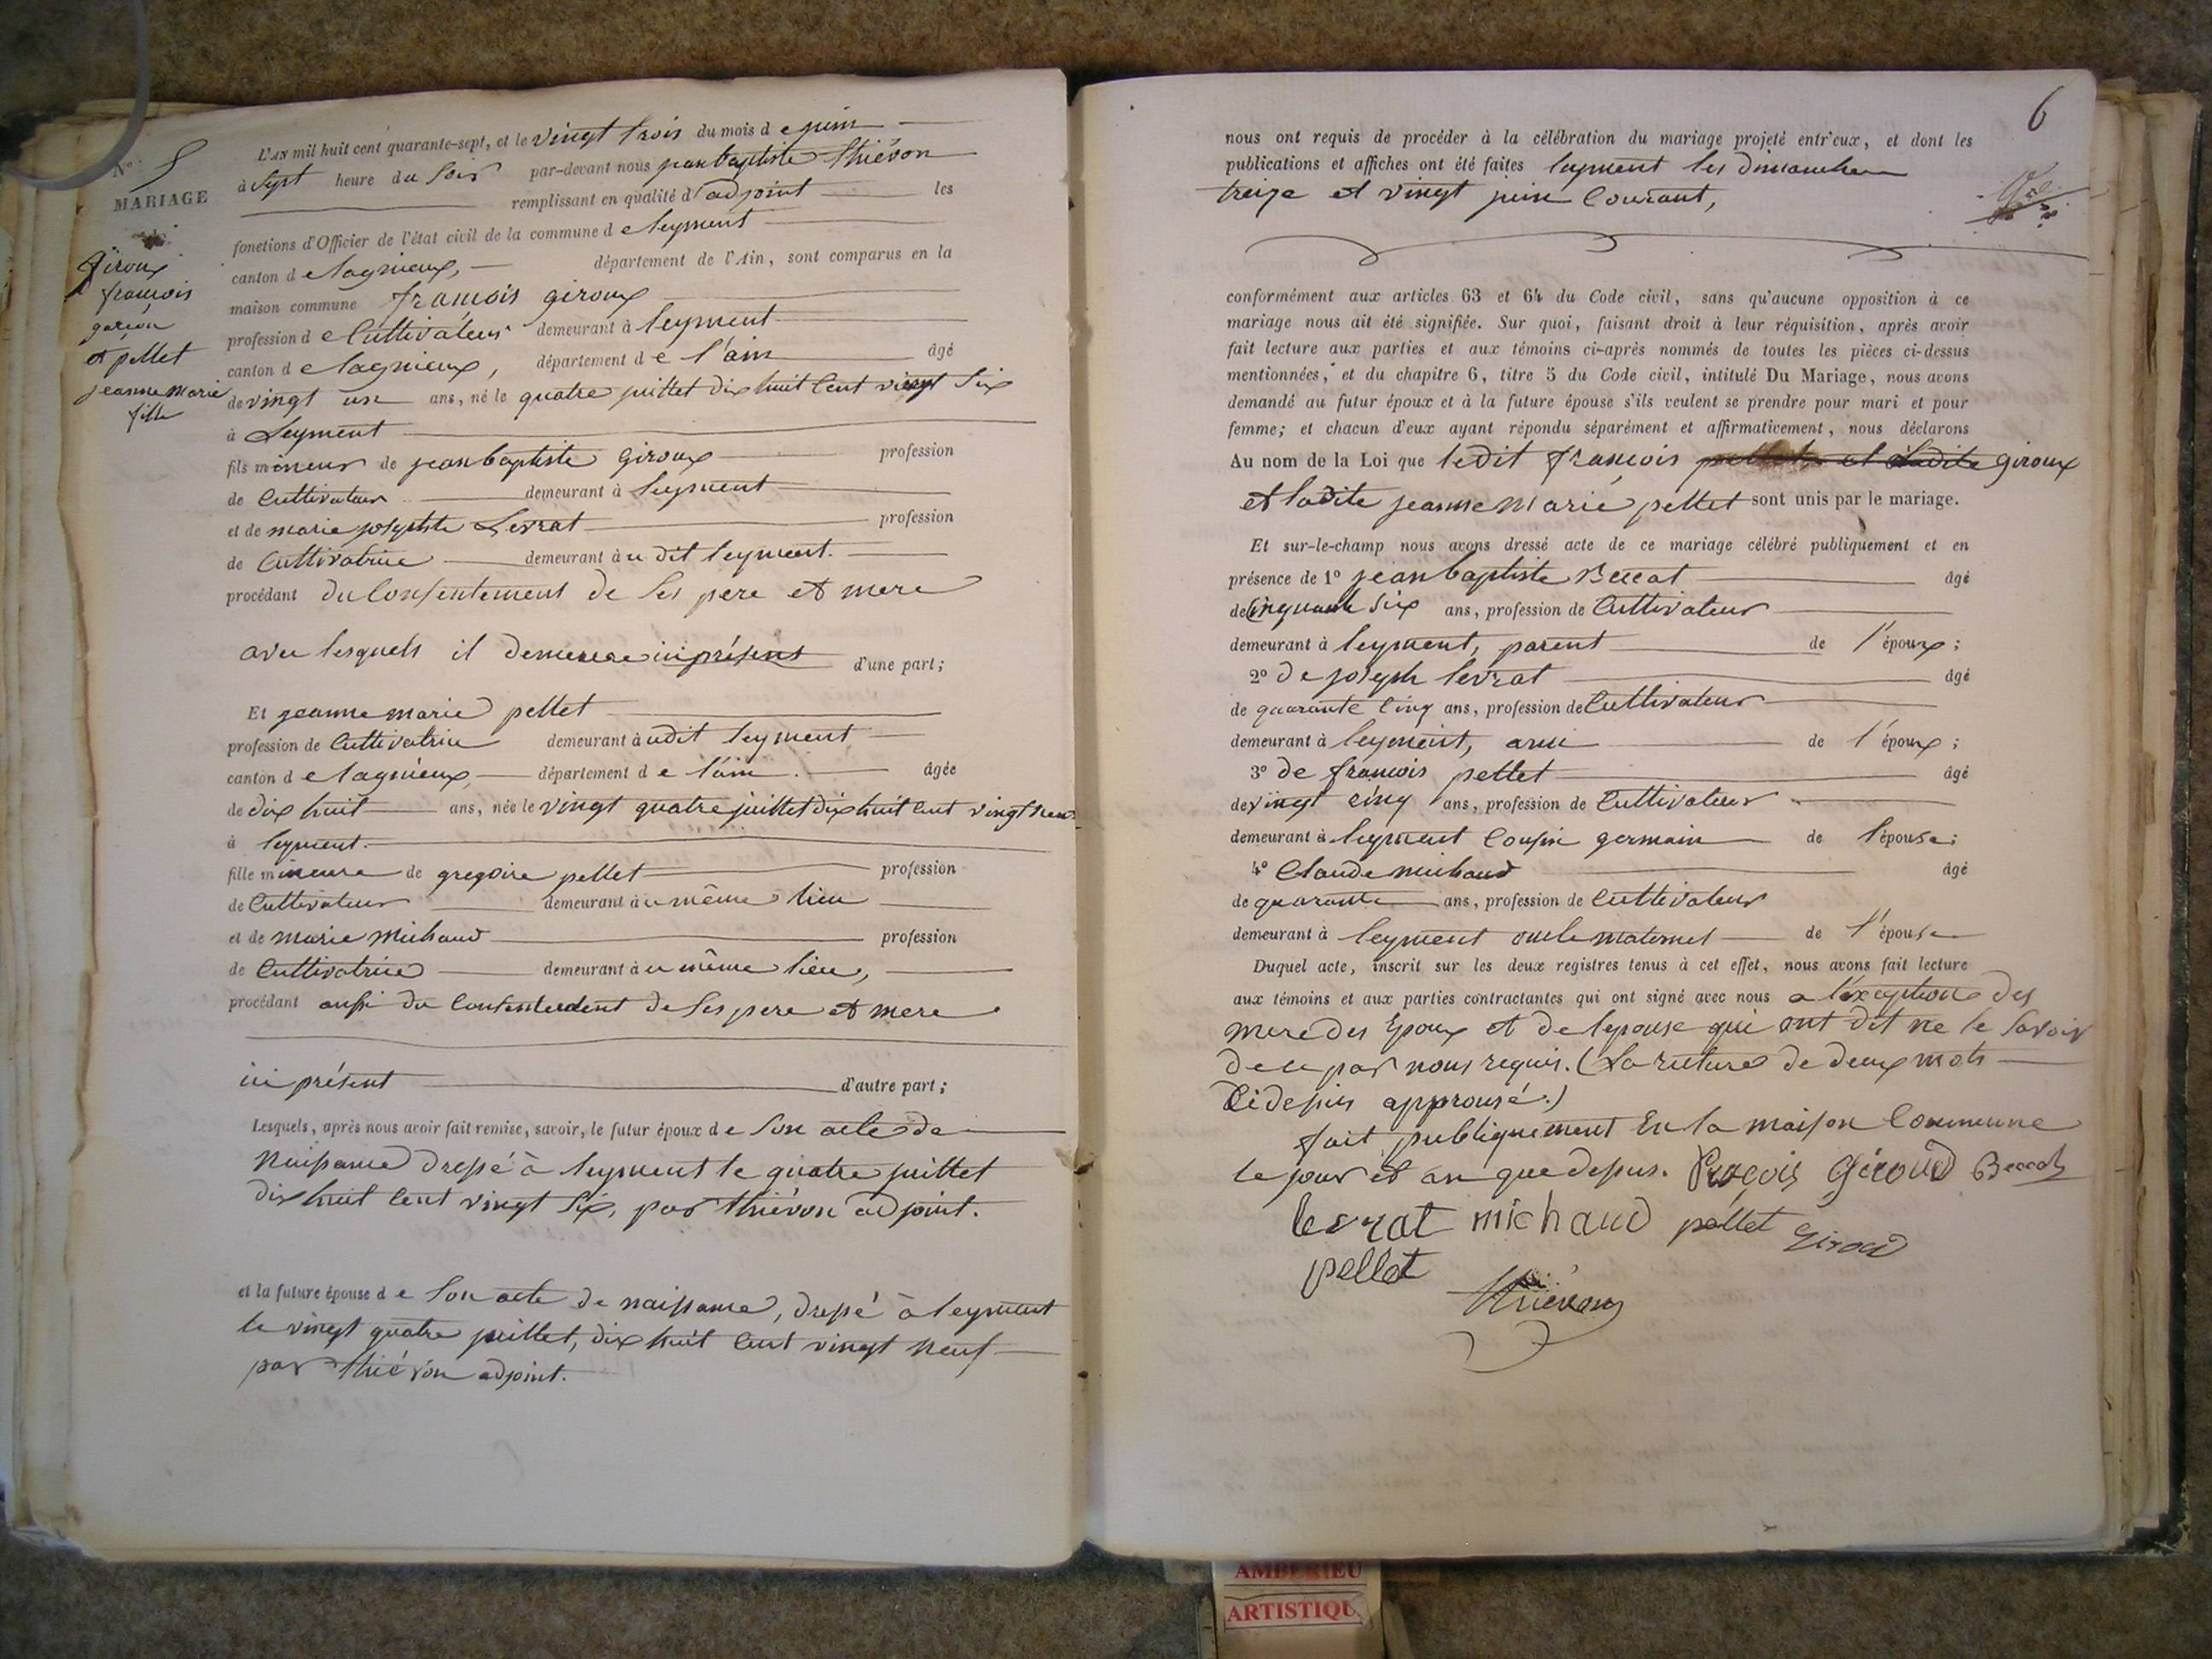 N° 5
MARIAGE
Giroux
françois
garçon
et pellet
jeanne marie
fille
L'AN mil huit cent quarante-sept, et le vingt trois du mois d e juin
à Sept heure du Soir par-devant nous jean baptiste thiévon
remplissant en qualité d'adjoint les
fonctions d'Officier de l'état civil de la commune d e leyment
canton d e lagnieux, département de l'Ain, sont comparus en la
maison commune françois giroux
profession d e Cultivateur demeurant à leyment
canton d e lagnieux, département d e l'ain âgé
de vingt un ans, né le quatre juillet dix huit cent vingt six
à Leyment
fils mineur de jean baptiste Giroux profession
de Cultivateur demeurant à leyment
et de marie josephte Levrat profession
de Cultivatrice demeurant à u dit leyment.
procédant du Consentement de Ses pere et mere
avec lesquels il demeure ici présens d'une part;
Et jeanne marie pellet
profession de Cultivatrice demeurant à udit leyment
canton d e lagnieux, département d e l'ain. âgée
de dix huit ans, née le vingt quatre juillet dix huit cent vingt neuf
à leyment.
fille mineure de gregoire pellet profession
de Cultivateur demeurant à u même lieu
et de marie Michaud profession
de Cultivatrice demeurant à u même lieu,
procédant aussi du Consentement de Ses pere et mere
ici présent d'autre part;
Lesquels, après nous avoir fait remise, savoir, le futur époux d e Son acte de
Naissance dressé à leyment le quatre juillet
dix huit Cent vingt Six, par thiévon adjoint.
et la future épouse d e Son acte de naissance, dressé à leyment
le vingt quatre juillet, dix huit Cent vingt neuf
par thiévon adjoint.
6
nous ont requis de procéder à la célébration du mariage projeté entr'eux, et dont les
publications et affiches ont été faites leyment les dimanche
treize et vingt juin Courant,
conformément aux articles 63 et 64 du Code civil, sans qu'aucune opposition à ce
mariage nous ait été signifiée. Sur quoi, faisant droit à leur réquisition, après avoir
fait lecture aux parties et aux témoins ci-après nommés de toutes les pièces ci-dessus
mentionnées, et du chapitre 6, titre 5 du Code civil, intitulé Du Mariage, nous avons
demandé au futur époux et à la future épouse s'ils veulent se prendre pour mari et pour
femme; et chacun d'eux ayant répondu séparément et affirmativement, nous déclarons
Au nom de la Loi que ledit françois pellet et Ladite giroux
et ladite jeanne Marie pellet sont unis par le mariage.
Et sur-le-champ nous avons dressé acte de ce mariage célébré publiquement et en
présence de 1° jean baptiste Beccat âgé
de Cinquante Six ans, profession de Cultivateur
demeurant à leyment, parent de l'époux;
2° de joseph levrat âgé
de quarante Cinq ans, profession de Cultivateur
demeurant à leyment, ami de l'époux;
3° de françois pellet âgé
de vingt cinq ans, profession de Cultivateur
demeurant à leyment Cousin germain de l'épouse;
4° Claude michaud âgé
de quarante ans, profession de Cultivateur
demeurant à leyment oncle maternel de l'épouse
Duquel acte, inscrit sur les deux registres tenus à cet effet, nous avons fait lecture
aux témoins et aux parties contractantes qui ont signé avec nous a l'exeption des
mere des Epoux et de lepouse qui ont dit ne le Savoir
de ce par nous requis. (La rature de deux mots
Cidesus approuvé.)
fait publiquement En la maison Commune
le jour et an que desus. Fraçois Géroud Beccat
levrat michaud pellet Giroud
pellet
thiévon
AMBERIEU
ARTISTIQU